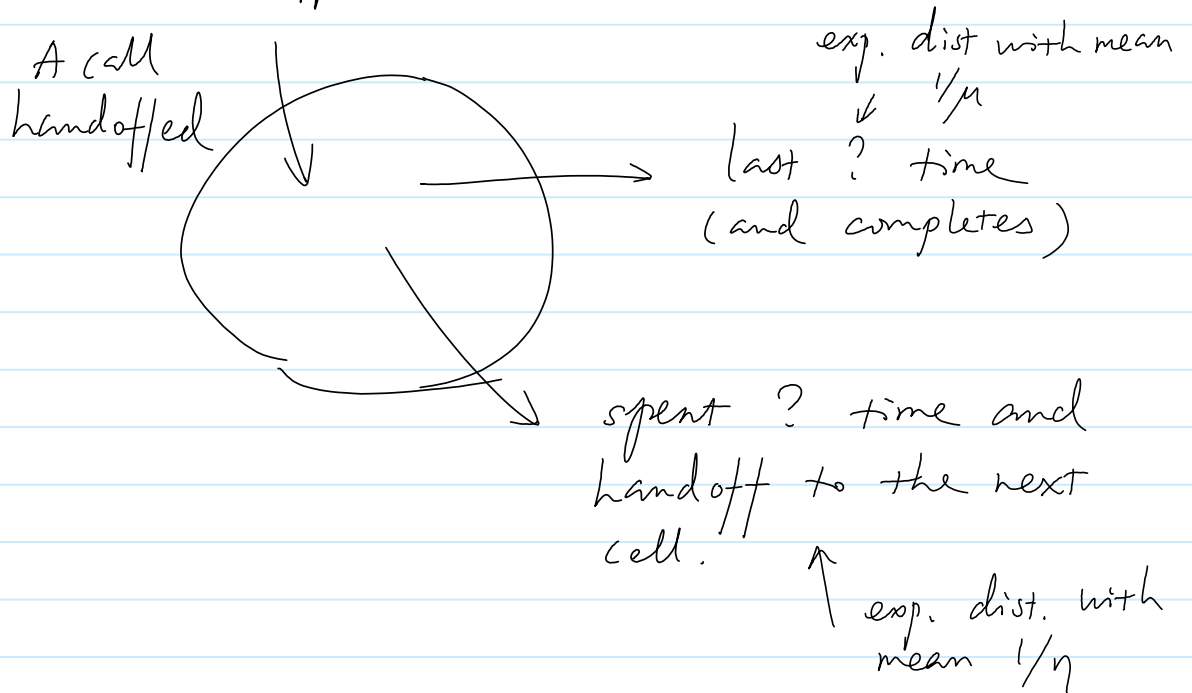 A call
handoffed
exp. dist with mean
1/μ
last ? time
(and completes)
spent ? time and
handoff to the next
cell.
exp. dist. with
mean 1/η